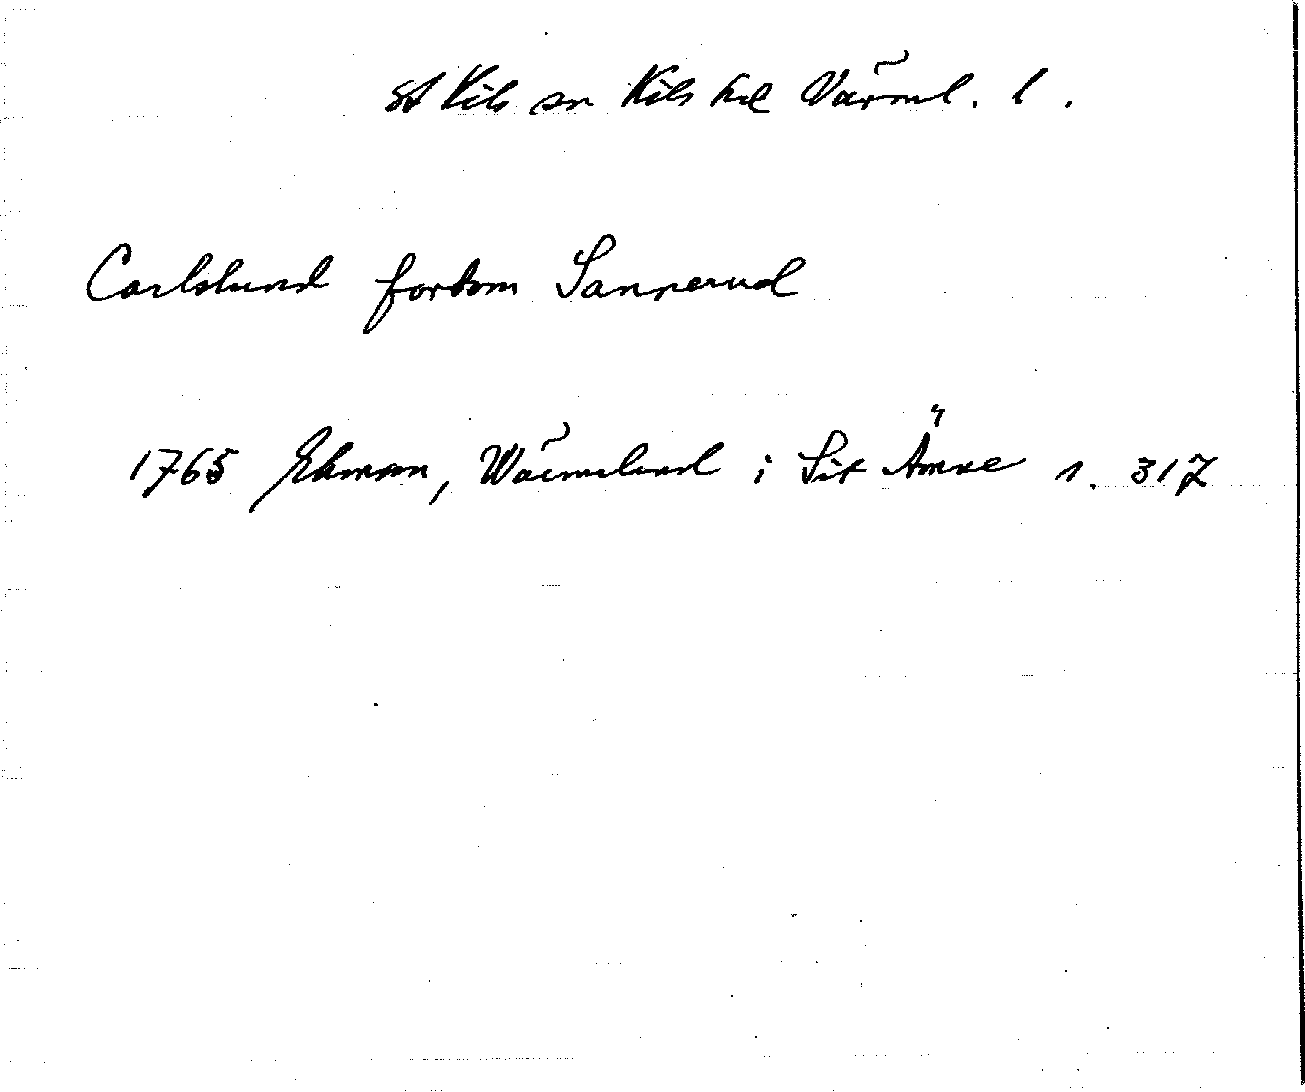 St Kils sn Kils hd Värml. l.
Carlslund fordom Sannerud
1765 Ekman, Wärmeland i Sit Ämne s. 317